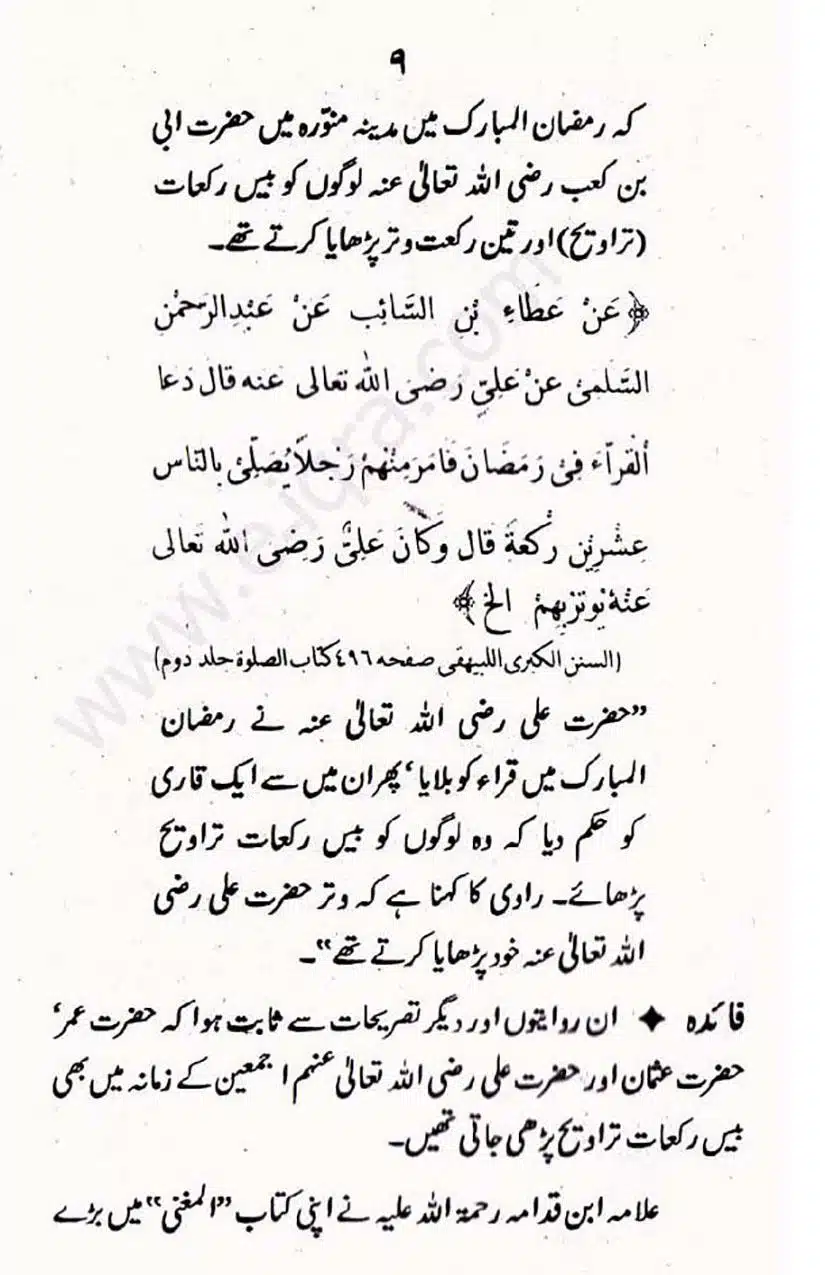 ۹
کہ رمضان المبارک میں مدینہ منوّرہ میں حضرت ابی
بن کعب رضی اللہ تعالیٰ عنہ لوگوں کو بیس رکعات
(تراویح) اور تین رکعت وتر پڑھایا کرتے تھے۔
﴿عَنْ عَطَاءِ بْنِ السَّائِب عَنْ عَبْدِالرَحمٰنِ
السَّلمیْ عنْ عَلِیّ رَضیَ اللّٰہ تعالی عنہ قال دَعَا
اَلْقرآءَ فِیْ رَمَضَانَ فَامَرَ مِنْھمْ رَجلاً یُصَلِّیْ بِالنَّاس
عِشْرِیْن رکْعةً قال وَکَانَ عَلِیٌّ رَضِیَ اللّٰہ تَعالی
عَنْہٗ یوتِرْ بِھِمْ الخ﴾
(السنن الکبریٰ اللبیھقی صفحہ ٤٩٦ کتاب الصلوۃ جلد دوم)
”حضرت علی رضی اللہ تعالیٰ عنہ نے رمضان
المبارک میں قراء کو بلایا‘ پھر ان میں سے ایک قاری
کو حکم دیا کہ وہ لوگوں کو بیس رکعات تراویح
پڑھائے۔ راوی کا کہنا ہے کہ وتر حضرت علی رضی
اللہ تعالیٰ عنہ خود پڑھایا کرتے تھے“۔
فائدہ ✦ ان روایتوں اور دیگر تصریحات سے ثابت ہوا کہ حضرت عمر‘
حضرت عثمان اور حضرت علی رضی اللہ تعالیٰ عنہم اجمعین کے زمانہ میں بھی
بیس رکعات تراویح پڑھی جاتی تھیں۔
علامہ ابن قدامہ رحمۃ اللہ علیہ نے اپنی کتاب ”المغنی“ میں بڑے
www.e-iqra.com